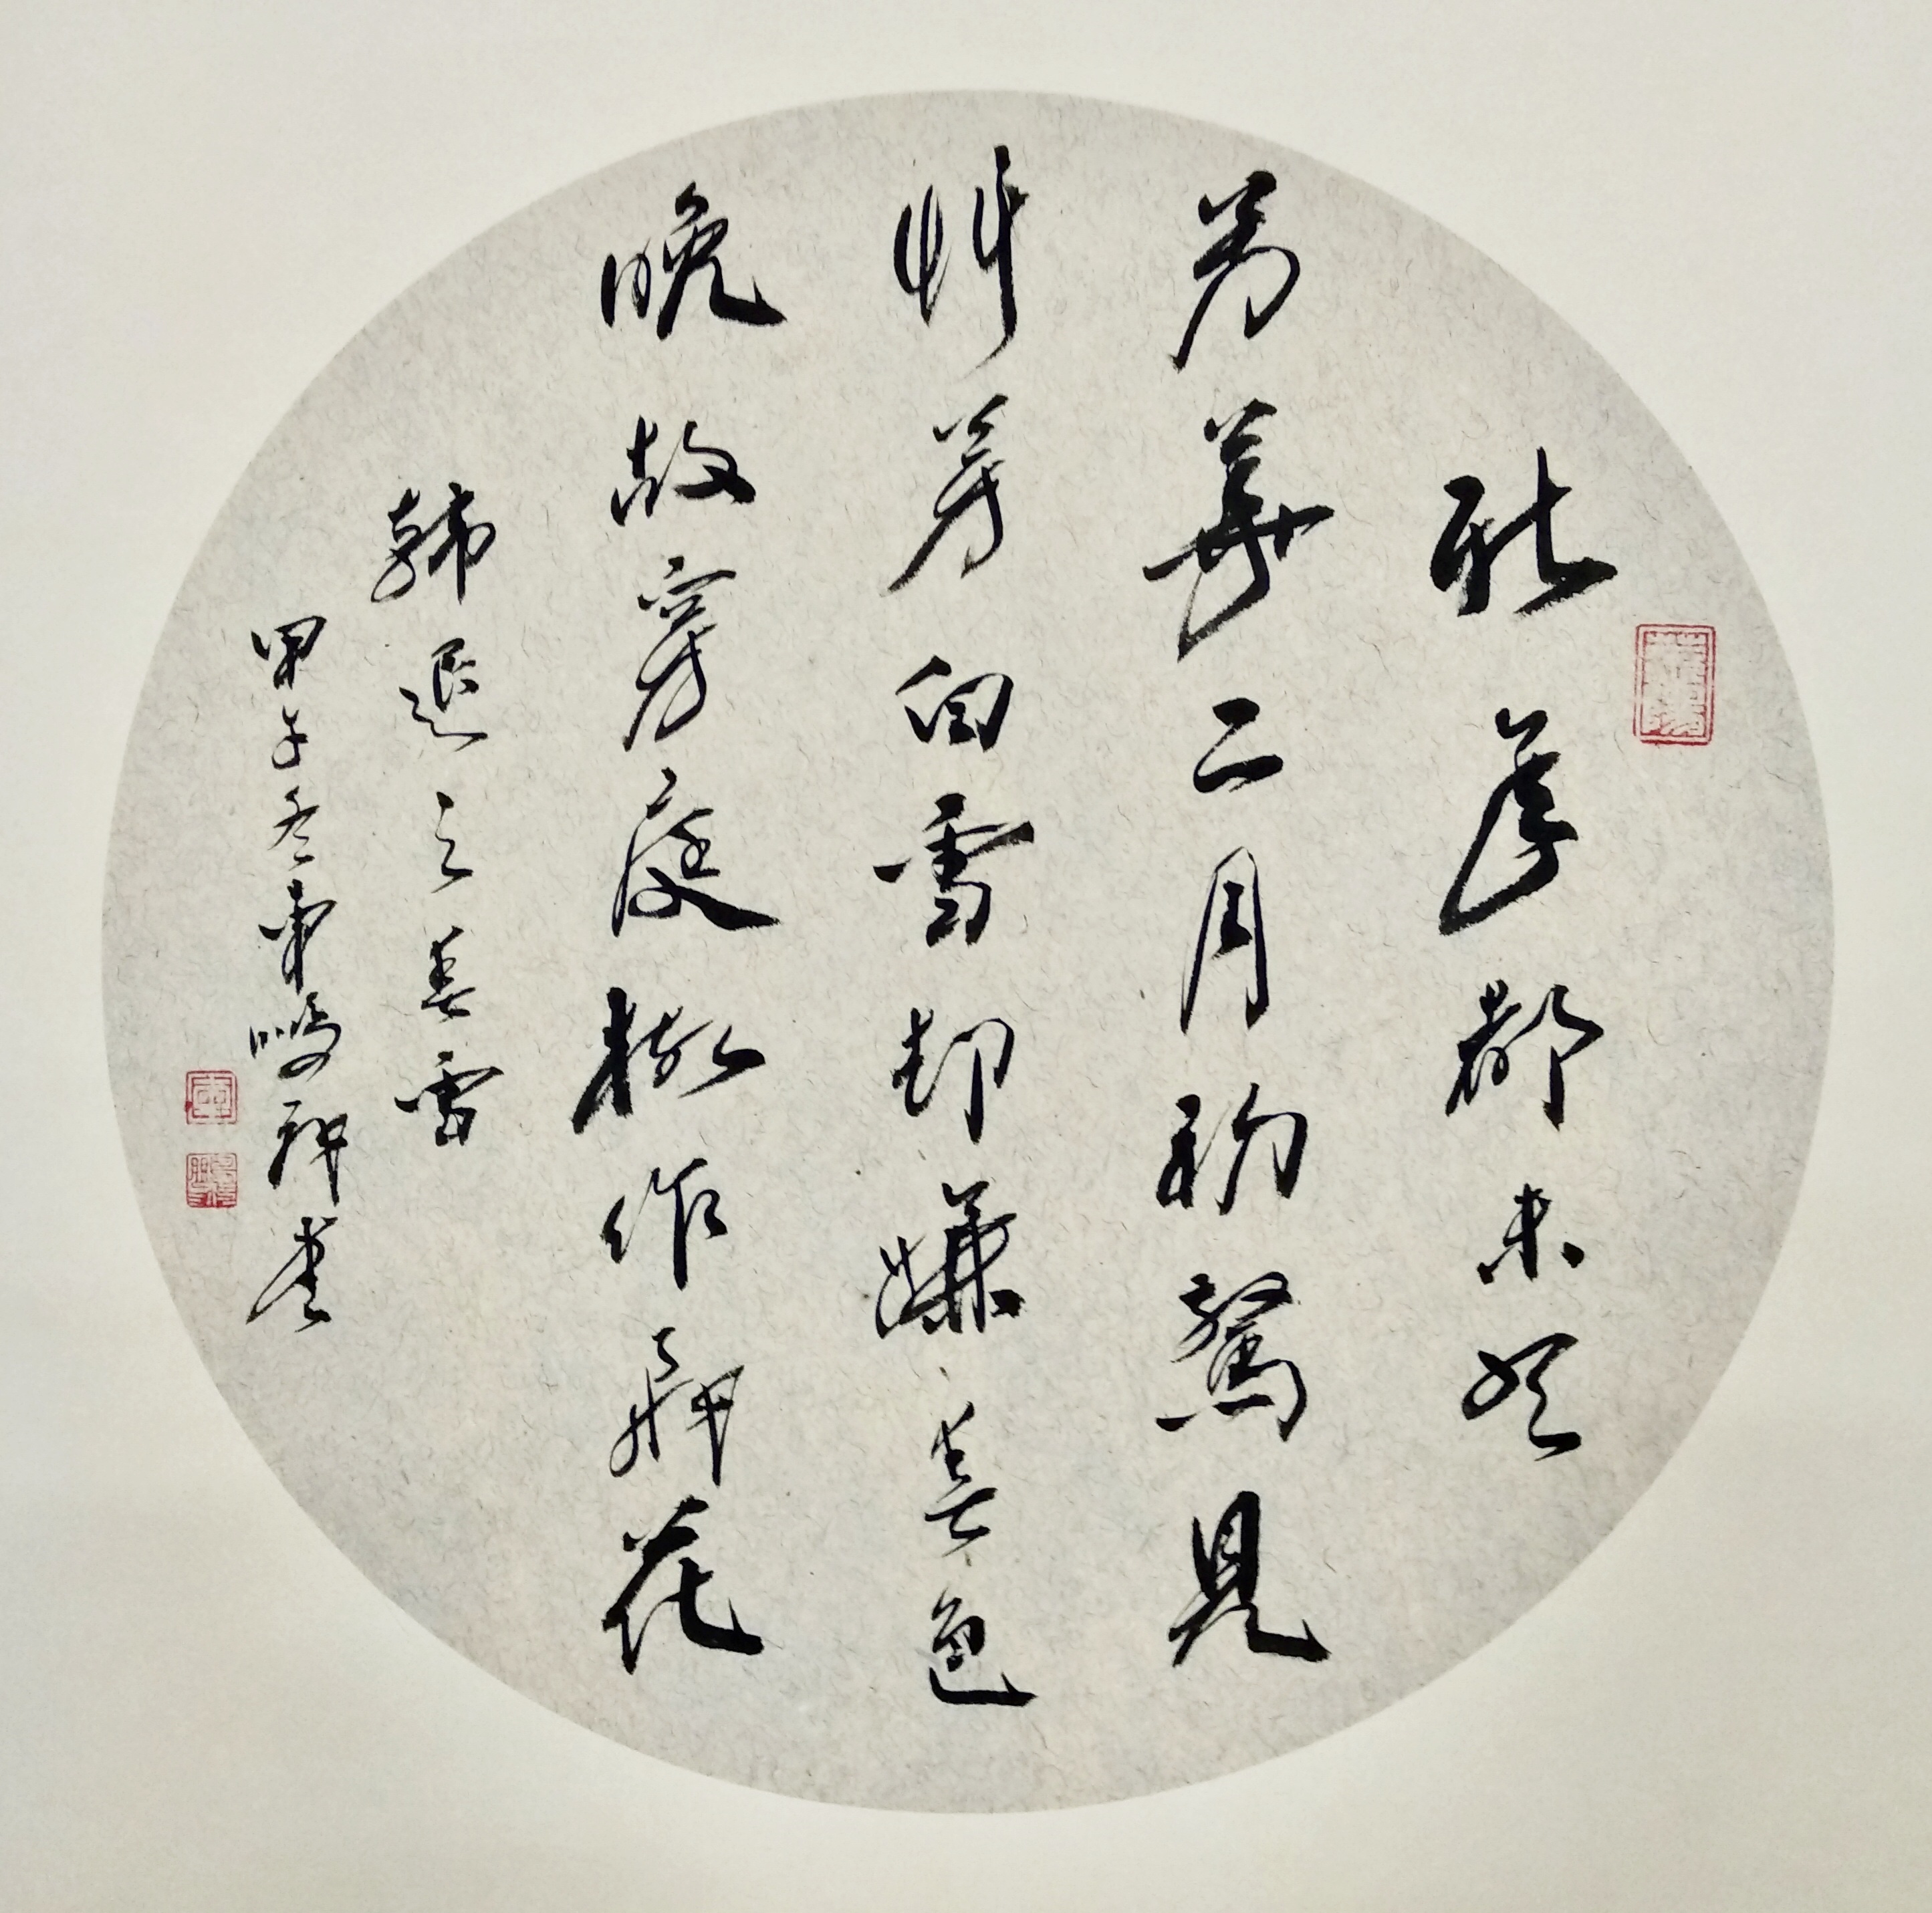 新年都未有
芳華二月初驚見
艸芽白雪却嫌春色
晚故穿庭樹作飛花
韓退之春雪
甲子冬書